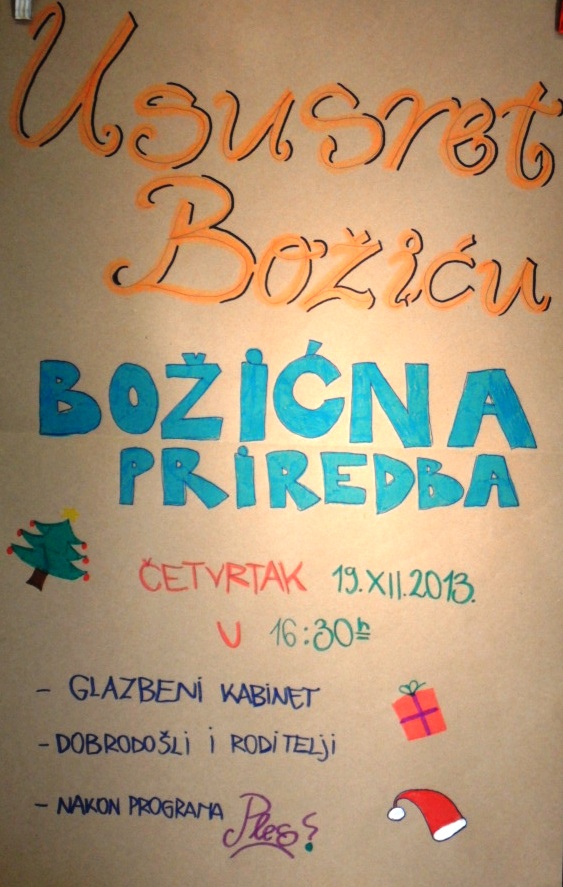 Ususret
Božiću
BOŽIĆNA
PRIREDBA
ČETVRTAK 19.XII.2013.
U 16:30h
- GLAZBENI KABINET
- DOBRODOŠLI I RODITELJI
- NAKON PROGRAMA Ples?